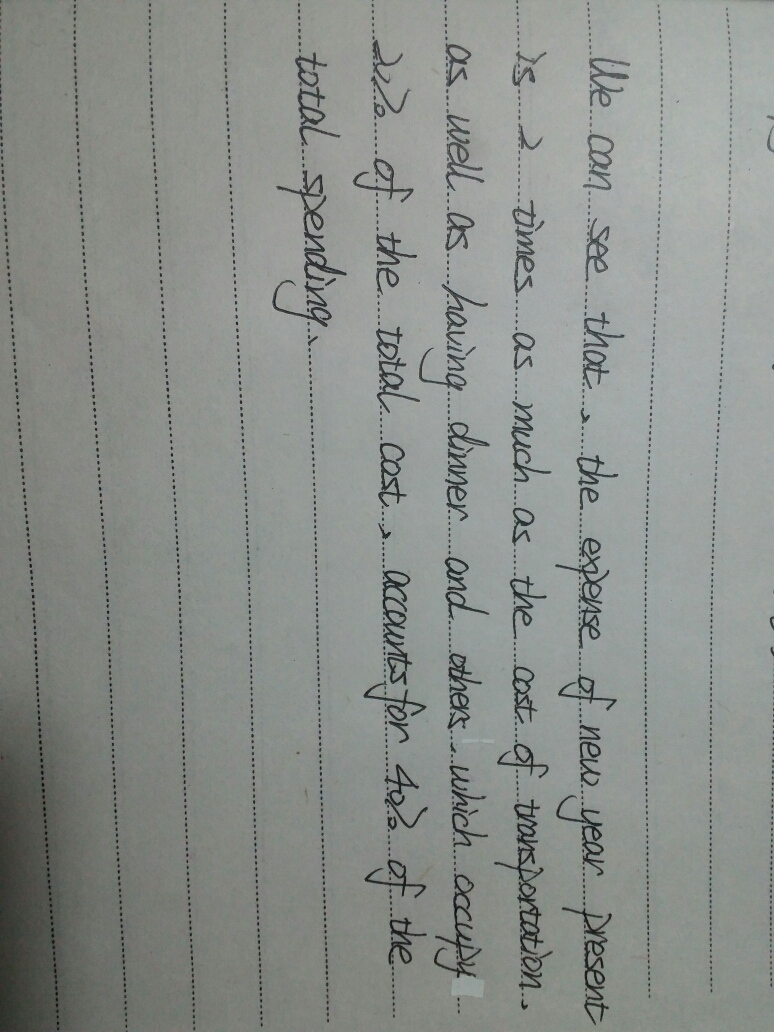 We can see that, the expense of new year present
is 2 times as much as the cost of transportation,
as well as having dinner and others, which occupy
20% of the total cost, accounts for 40% of the
total spending.